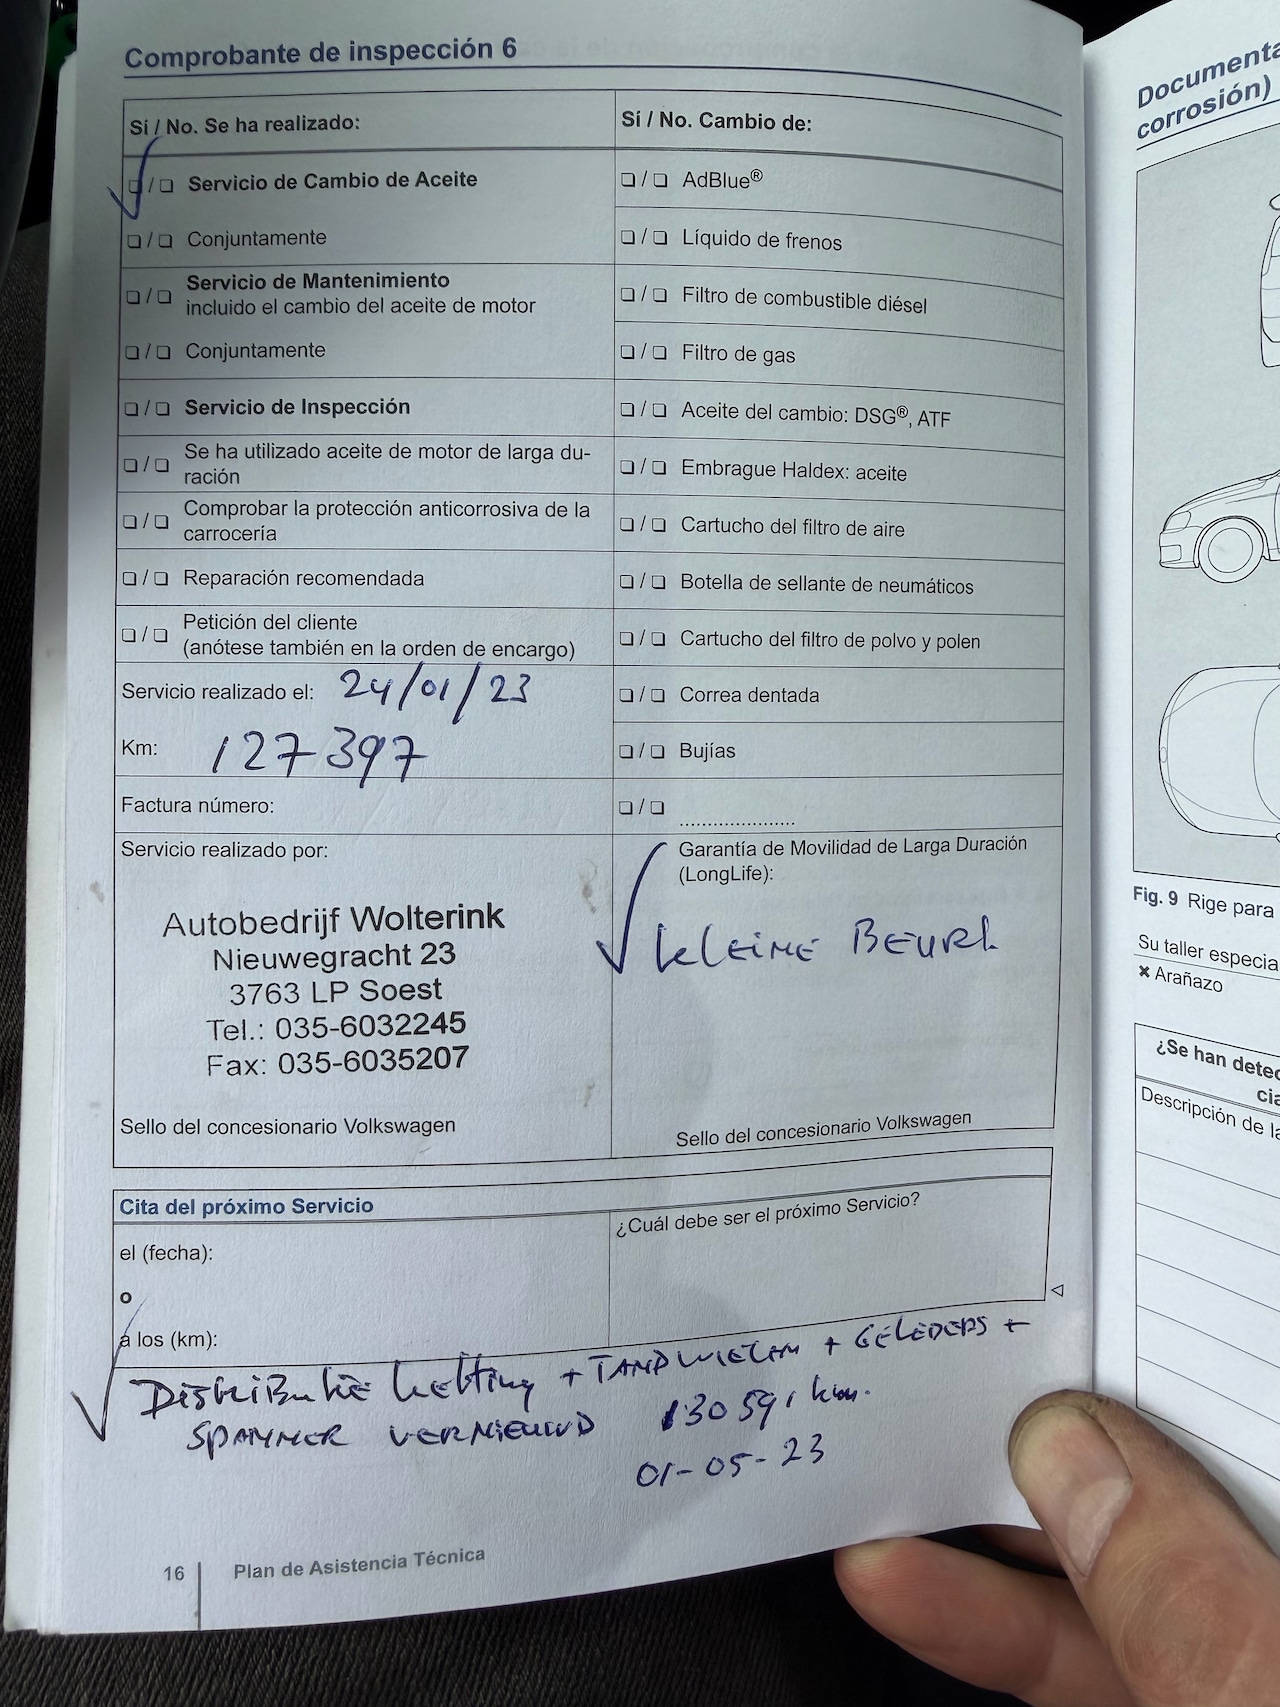 Comprobante de inspección 6
Sí / No. Se ha realizado:
❏ / ❏ Servicio de Cambio de Aceite
❏ / ❏ Conjuntamente
❏ / ❏ Servicio de Mantenimiento
incluido el cambio del aceite de motor
❏ / ❏ Conjuntamente
❏ / ❏ Servicio de Inspección
❏ / ❏ Se ha utilizado aceite de motor de larga du-
ración
❏ / ❏ Comprobar la protección anticorrosiva de la
carrocería
❏ / ❏ Reparación recomendada
❏ / ❏ Petición del cliente
(anótese también en la orden de encargo)
Servicio realizado el: 24/01/23
Km: 127397
Factura número:
Servicio realizado por:
Autobedrijf Wolterink
Nieuwegracht 23
3763 LP Soest
Tel.: 035-6032245
Fax: 035-6035207
Sello del concesionario Volkswagen
Sí / No. Cambio de:
❏ / ❏ AdBlue®
❏ / ❏ Líquido de frenos
❏ / ❏ Filtro de combustible diésel
❏ / ❏ Filtro de gas
❏ / ❏ Aceite del cambio: DSG®, ATF
❏ / ❏ Embrague Haldex: aceite
❏ / ❏ Cartucho del filtro de aire
❏ / ❏ Botella de sellante de neumáticos
❏ / ❏ Cartucho del filtro de polvo y polen
❏ / ❏ Correa dentada
❏ / ❏ Bujías
❏ / ❏ .....................
Garantía de Movilidad de Larga Duración
(LongLife):
KLEINE BEURT
Sello del concesionario Volkswagen
Cita del próximo Servicio
el (fecha):
o
a los (km):
¿Cuál debe ser el próximo Servicio?
DISTRIBUTIE ketting + TANDWIELEN + GELEDERS +
SPANNER VERNIEUWD 130591 km.
01-05-23
16 Plan de Asistencia Técnica
Documenta
corrosión)
Fig. 9 Rige para
Su taller especia
✖ Arañazo
¿Se han detec
cia
Descripción de la